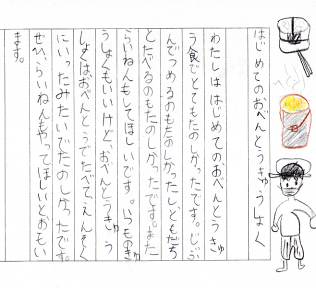 はじめてのおべんとうきゅうしょく
わたしははじめてのおべんとうきゅ
う食でとてもたのしかったです。じぶ
んでつめるのもたのしかったし、ともだち
とたべるのもたのしかったです。また
らいねんもしてほしいです。いつものきゅ
うしょくもいいけど、おべんとうきゅう
しょくはおべんとうでたべて、えんそく
にいったみたいでたのしかったです。
ぜひ、らいねんもやってほしいとおもい
ます。